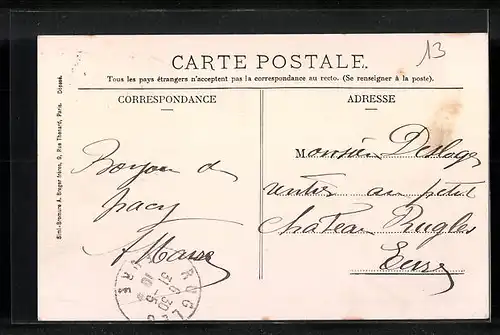 13
CARTE POSTALE.
Tous les pays étrangers n'acceptent pas la correspondance au recto. (Se renseigner à la poste).
CORRESPONDANCE
ADRESSE
Simili-Gravure A. Breger frères, 9, Rue Thénard, Paris. Déposé.
Bonjour de
Pacy
Monsieur Desloges
rentier au petit
château Rugles
Eure
RUGLES
31 -5
10
EURE